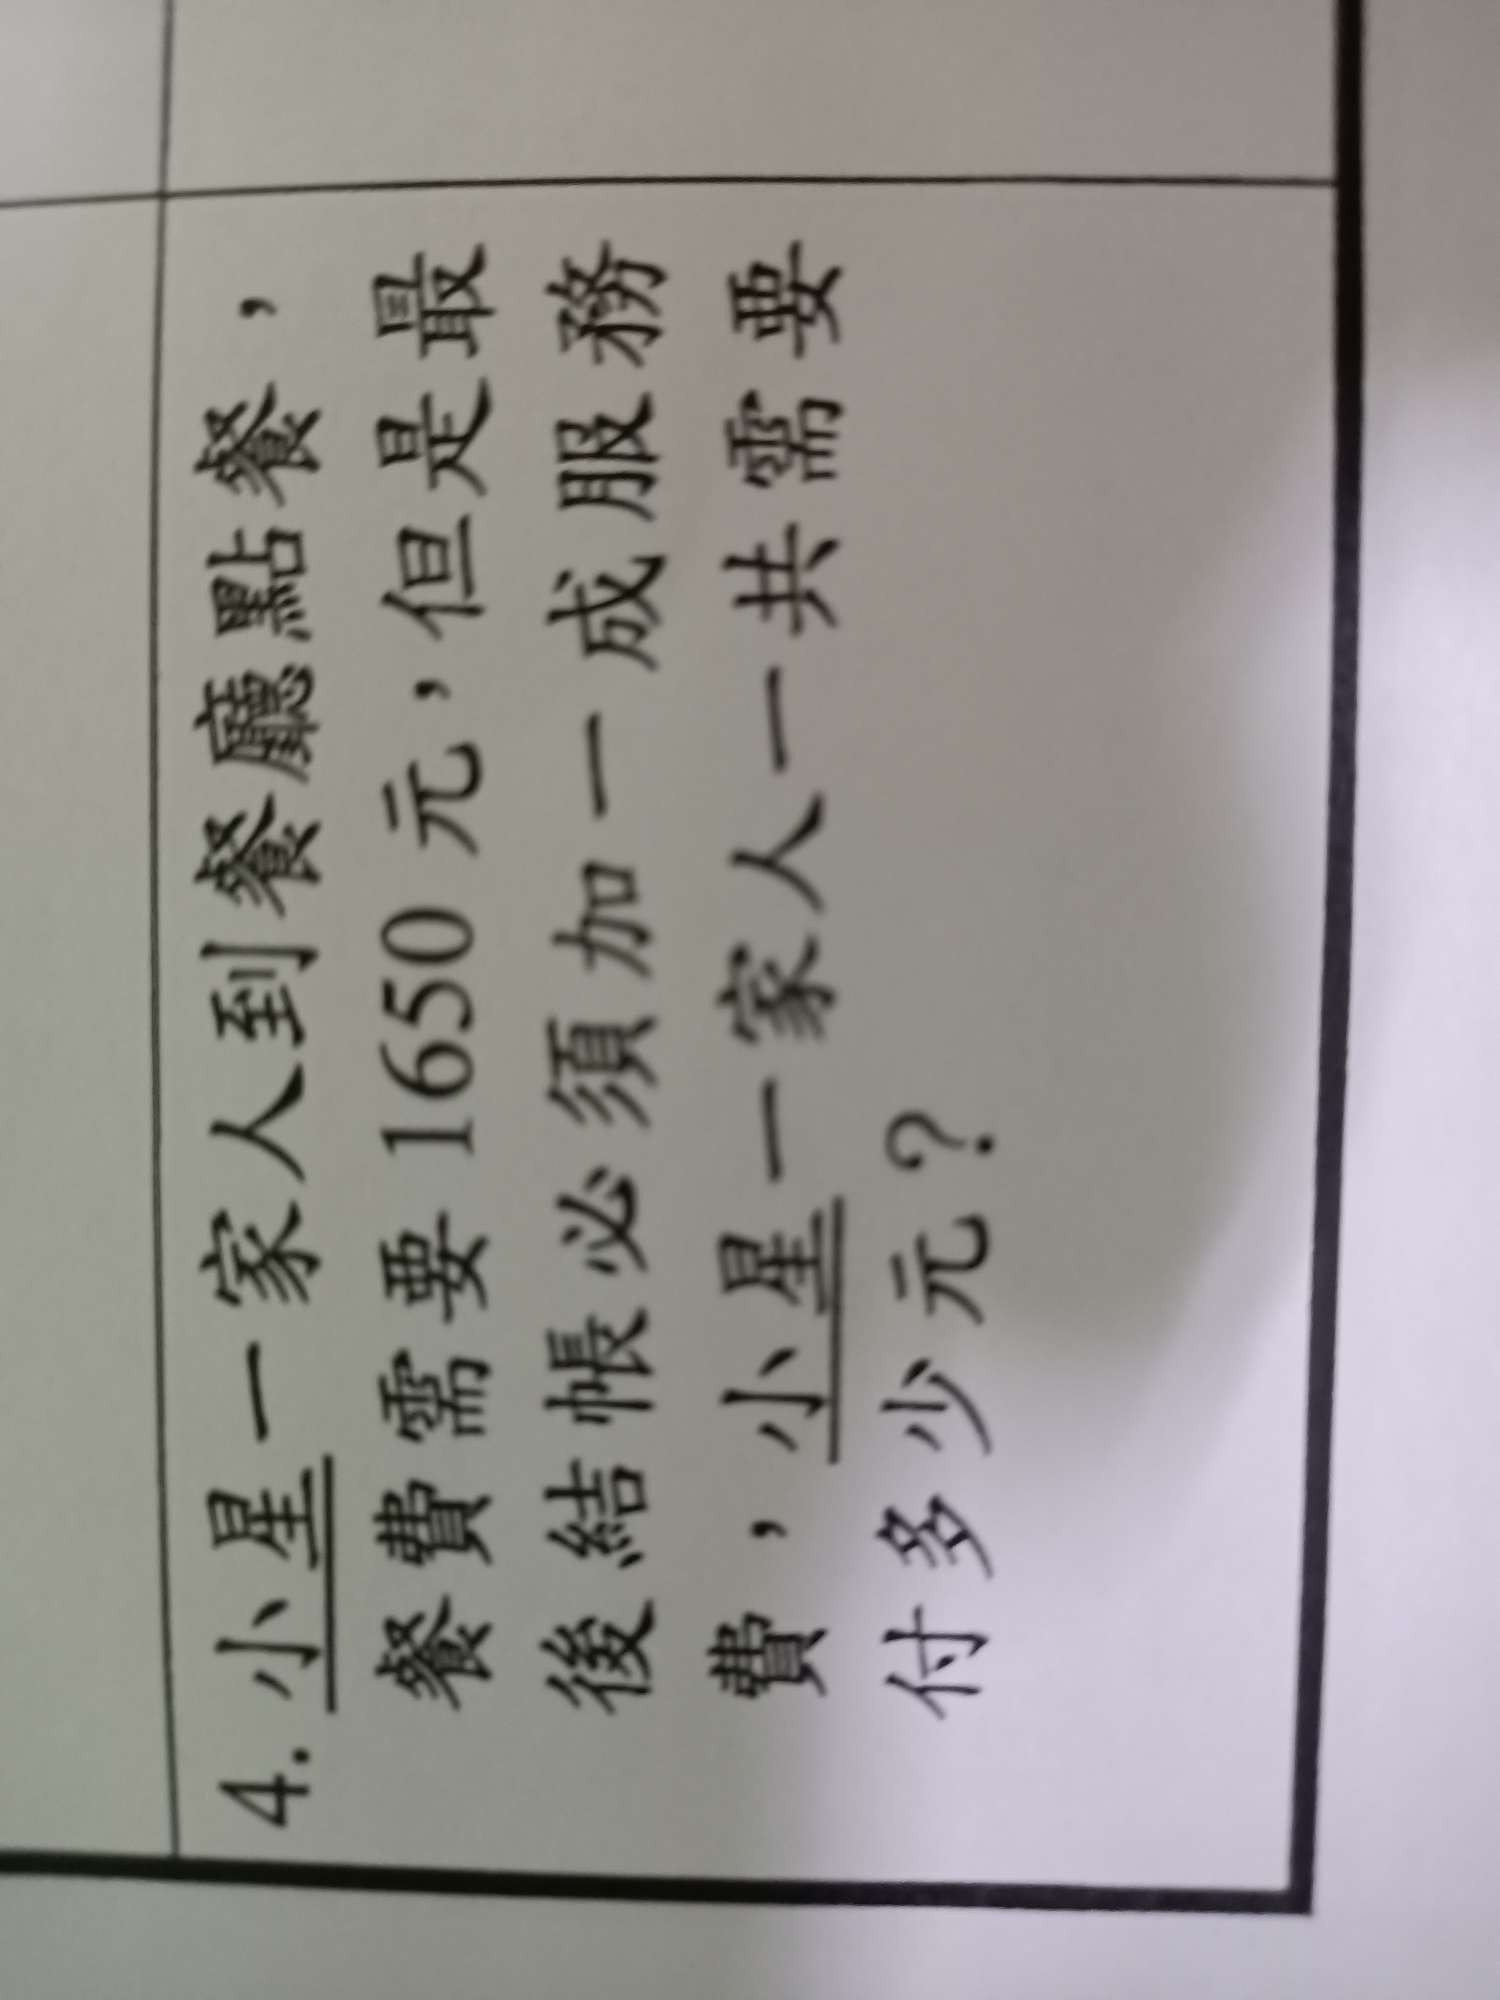 4. 小星一家人到餐廳點餐，
餐費需要 1650 元，但是最
後結帳必須加一成服務
費，小星一家人一共需要
付多少元？